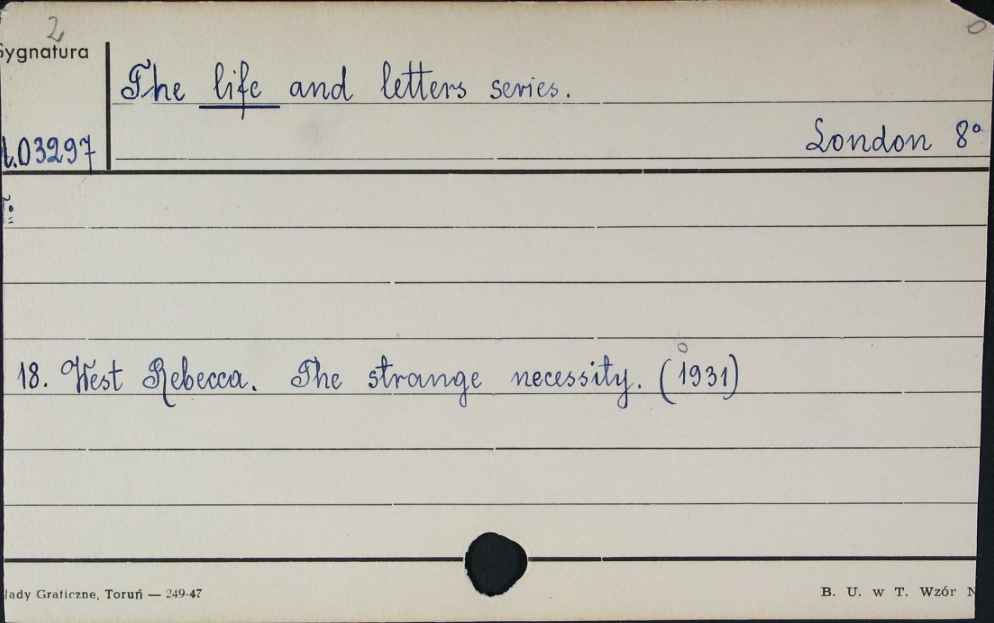 2
Sygnatura
The life and letters series.
03297
London 8°
18. West Rebecca. The strange necessity. (1931)
łady Graficzne, Toruń — 249-47
B. U. w T. Wzór N